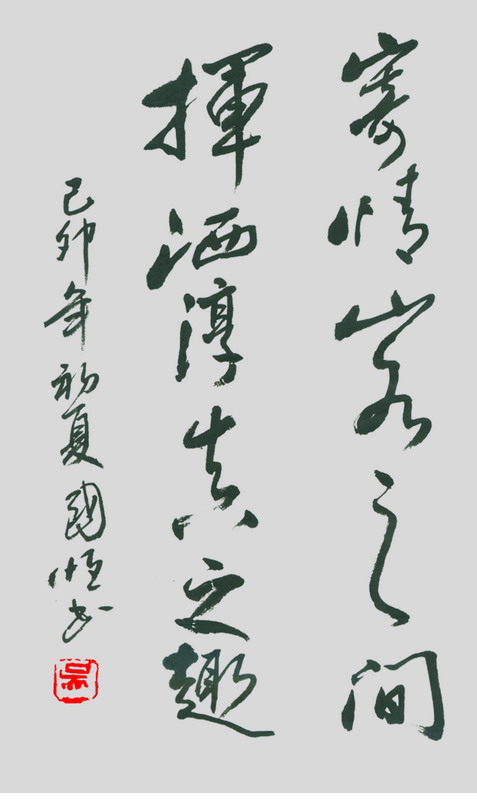 寄情山水之间
揮洒淳真之趣
己卯年初夏國恒书